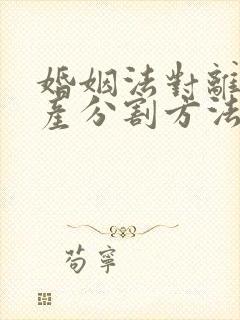 婚姻法對離
產分割方法
荀寧